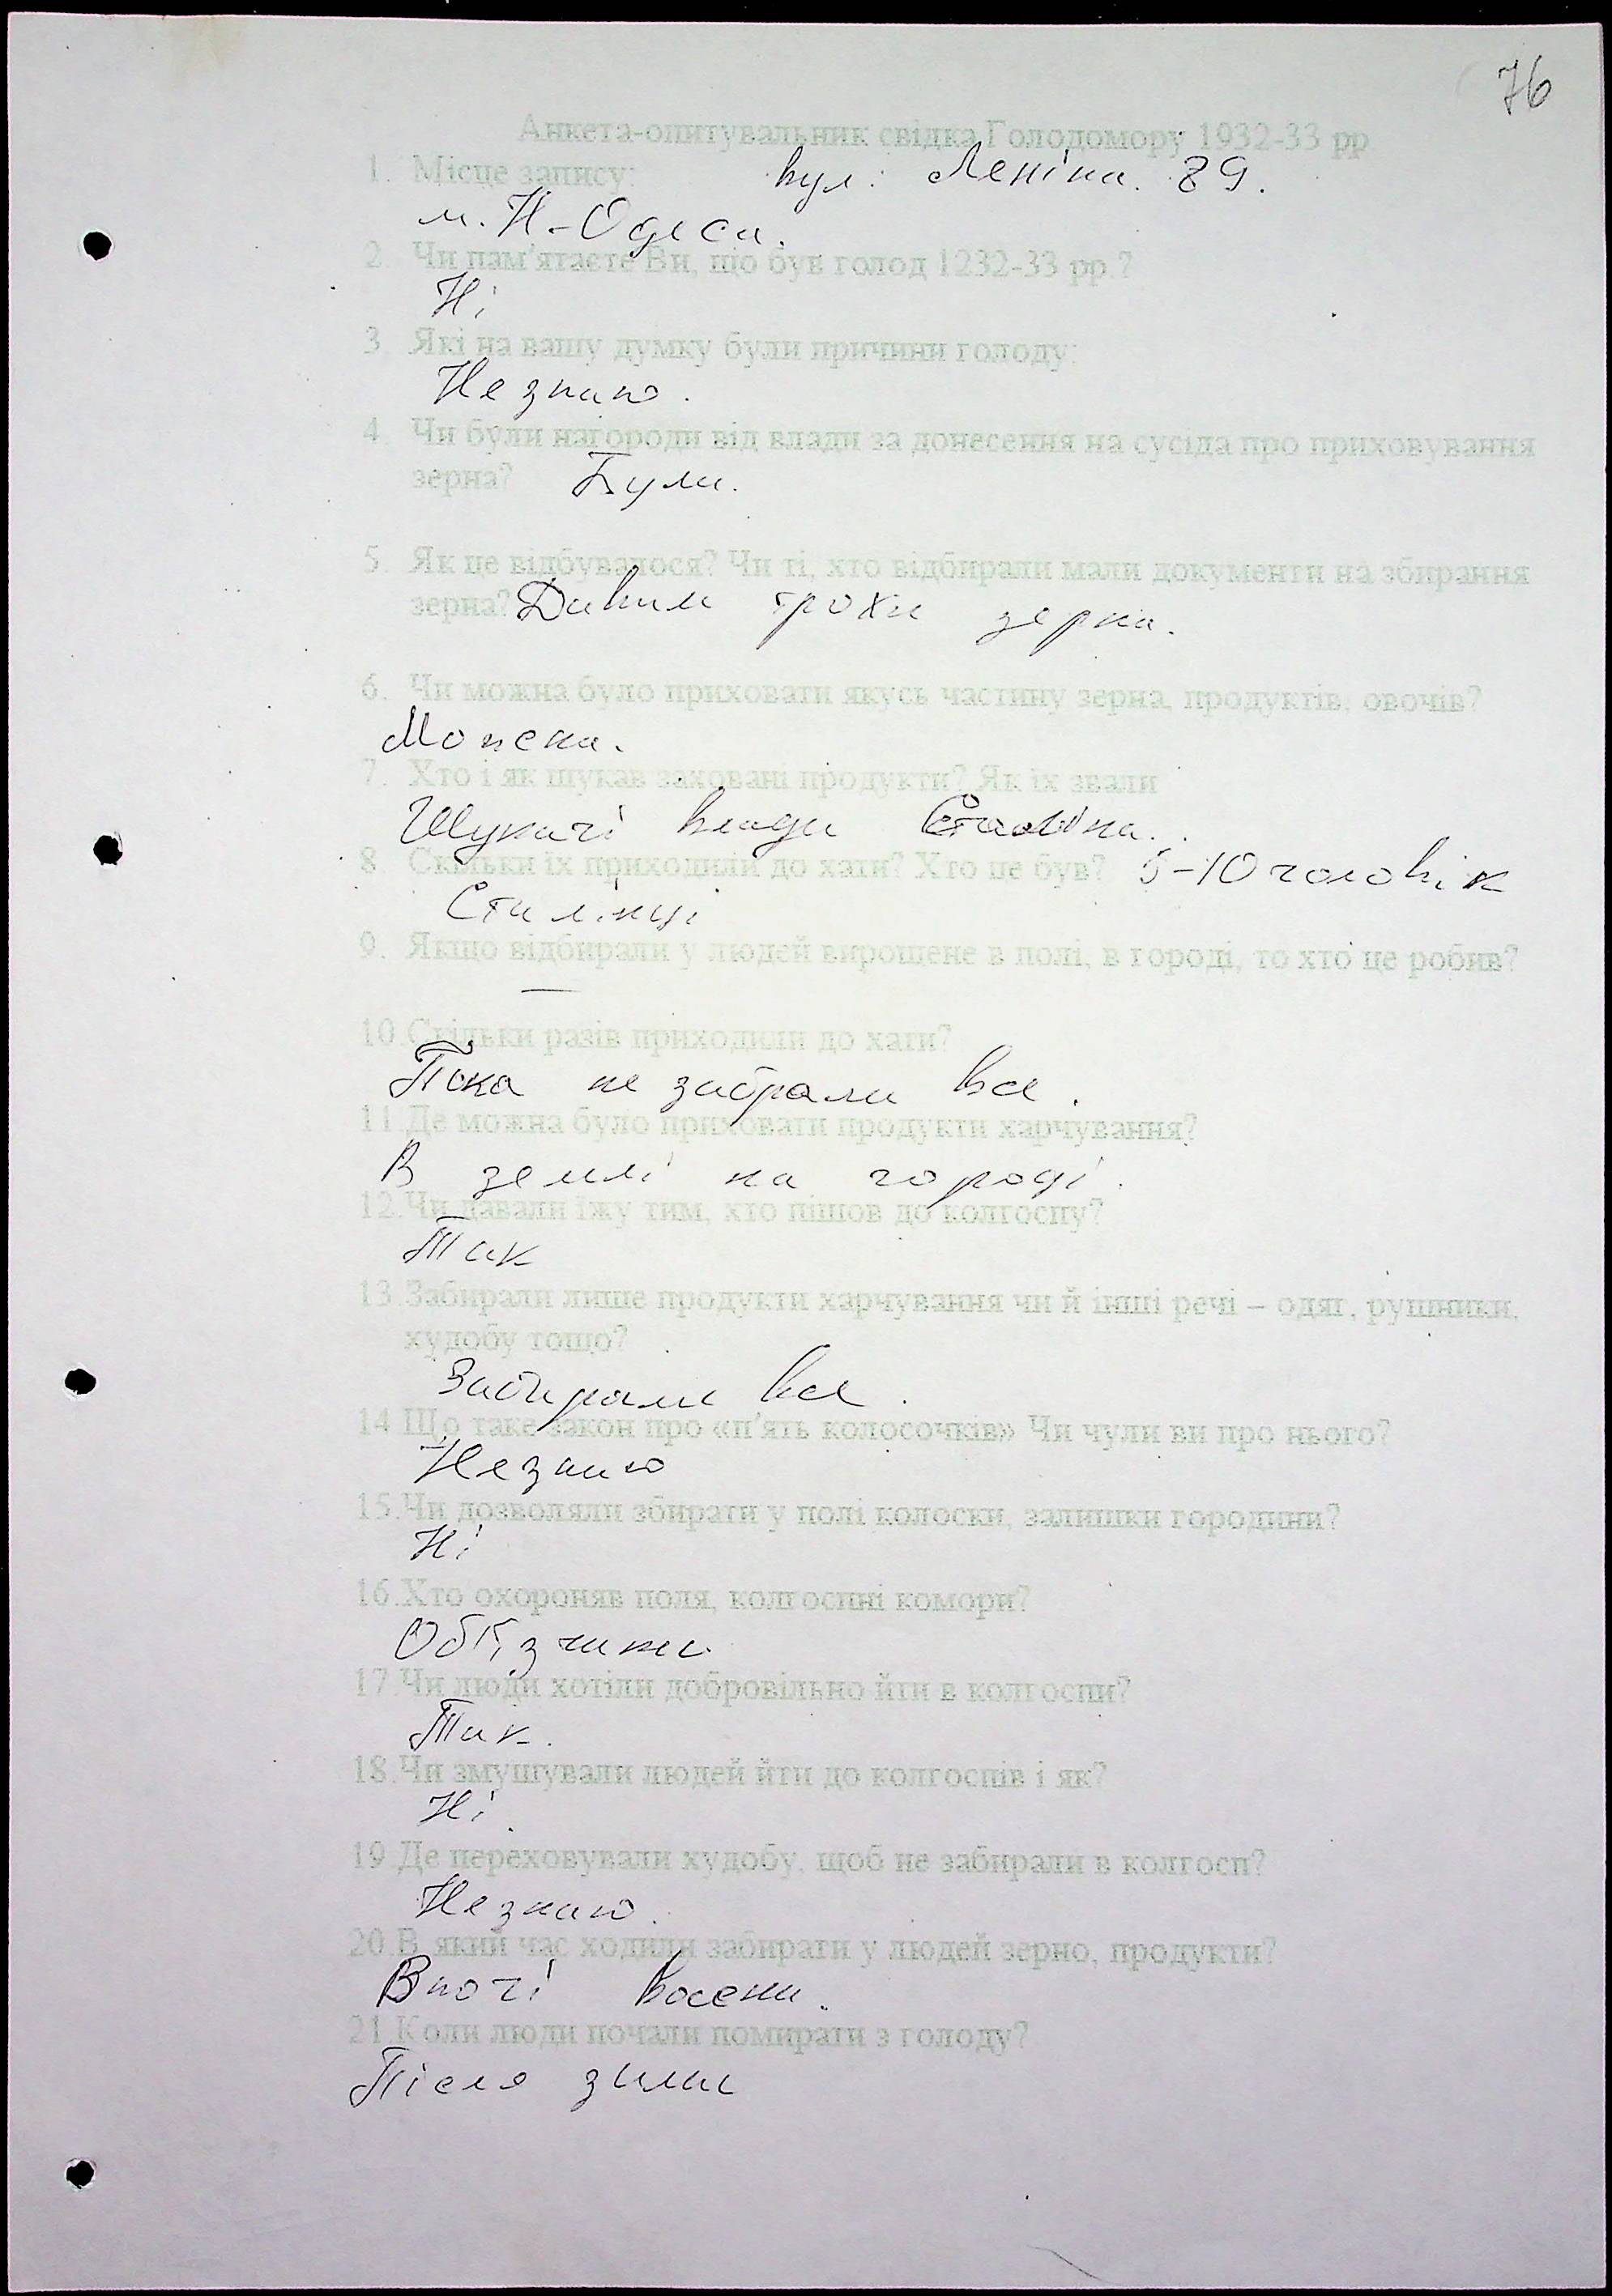 76
Анкета-опитувальник свідка Голодомору 1932-33 рр
1. Місце запису: вул: Леніна. 89.
м. Н-Одеса.
2. Чи пам'ятаєте Ви, що був голод 1232-33 рр.?
Ні
3 Які на вашу думку були причини голоду:
Незнаю.
4. Чи були нагороди від влади за донесення на сусіда про приховування
зерна? Були.
5. Як це відбувалося? Чи ті, хто відбирали мали документи на збирання
зерна? Давали трохи зерна.
6. Чи можна було приховати якусь частину зерна, продуктів, овочів?
Можена.
7. Хто і як шукав заховані продукти? Як їх звали
Шукачі влади Сталіна.
8. Скільки їх приходили до хати? Хто це був? 5-10 чоловік
Сталінці
9. Якщо відбирали у людей вирощене в полі, в городі, то хто це робив?
—
10.Скільки разів приходили до хати?
Пока не забрали все.
11.Де можна було приховати продукти харчування?
В землі на городі.
12.Чи давали їжу тим, хто пішов до колгоспу?
Так
13.Забирали лише продукти харчування чи й інші речі – одяг, рушники,
худобу тощо?
Забирали все.
14.Що таке закон про «п'ять колосочків» Чи чули ви про нього?
Незнаю
15.Чи дозволяли збирати у полі колоски, залишки городини?
Ні
16.Хто охороняв поля, колгоспні комори?
Обїзчики.
17.Чи люди хотіли добровільно йти в колгоспи?
Так.
18.Чи змушували людей йти до колгоспів і як?
Ні.
19.Де переховували худобу, щоб не забирали в колгосп?
Незнаю.
20.В який час ходили забирати у людей зерно, продукти?
Вночі восени.
21.Коли люди почали помирати з голоду?
Після зими